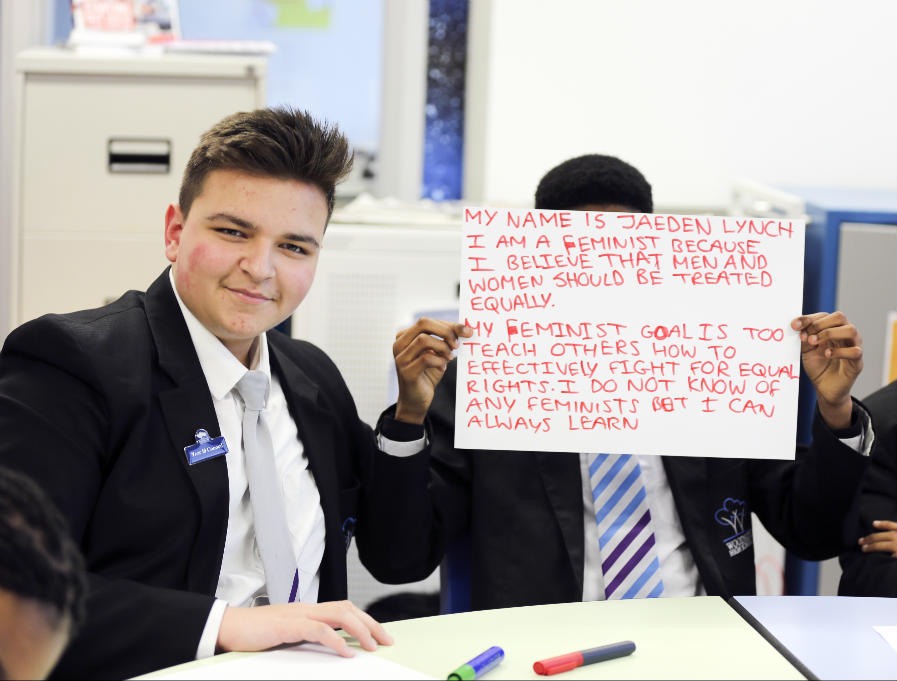 MY NAME IS JAEDEN LYNCH
I AM A FEMINIST BECAUSE
I BELIEVE THAT MEN AND
WOMEN SHOULD BE TREATED
EQUALLY.
MY FEMINIST GOAL IS TOO
TEACH OTHERS HOW TO
EFFECTIVELY FIGHT FOR EQUAL
RIGHTS. I DO NOT KNOW OF
ANY FEMINISTS BUT I CAN
ALWAYS LEARN